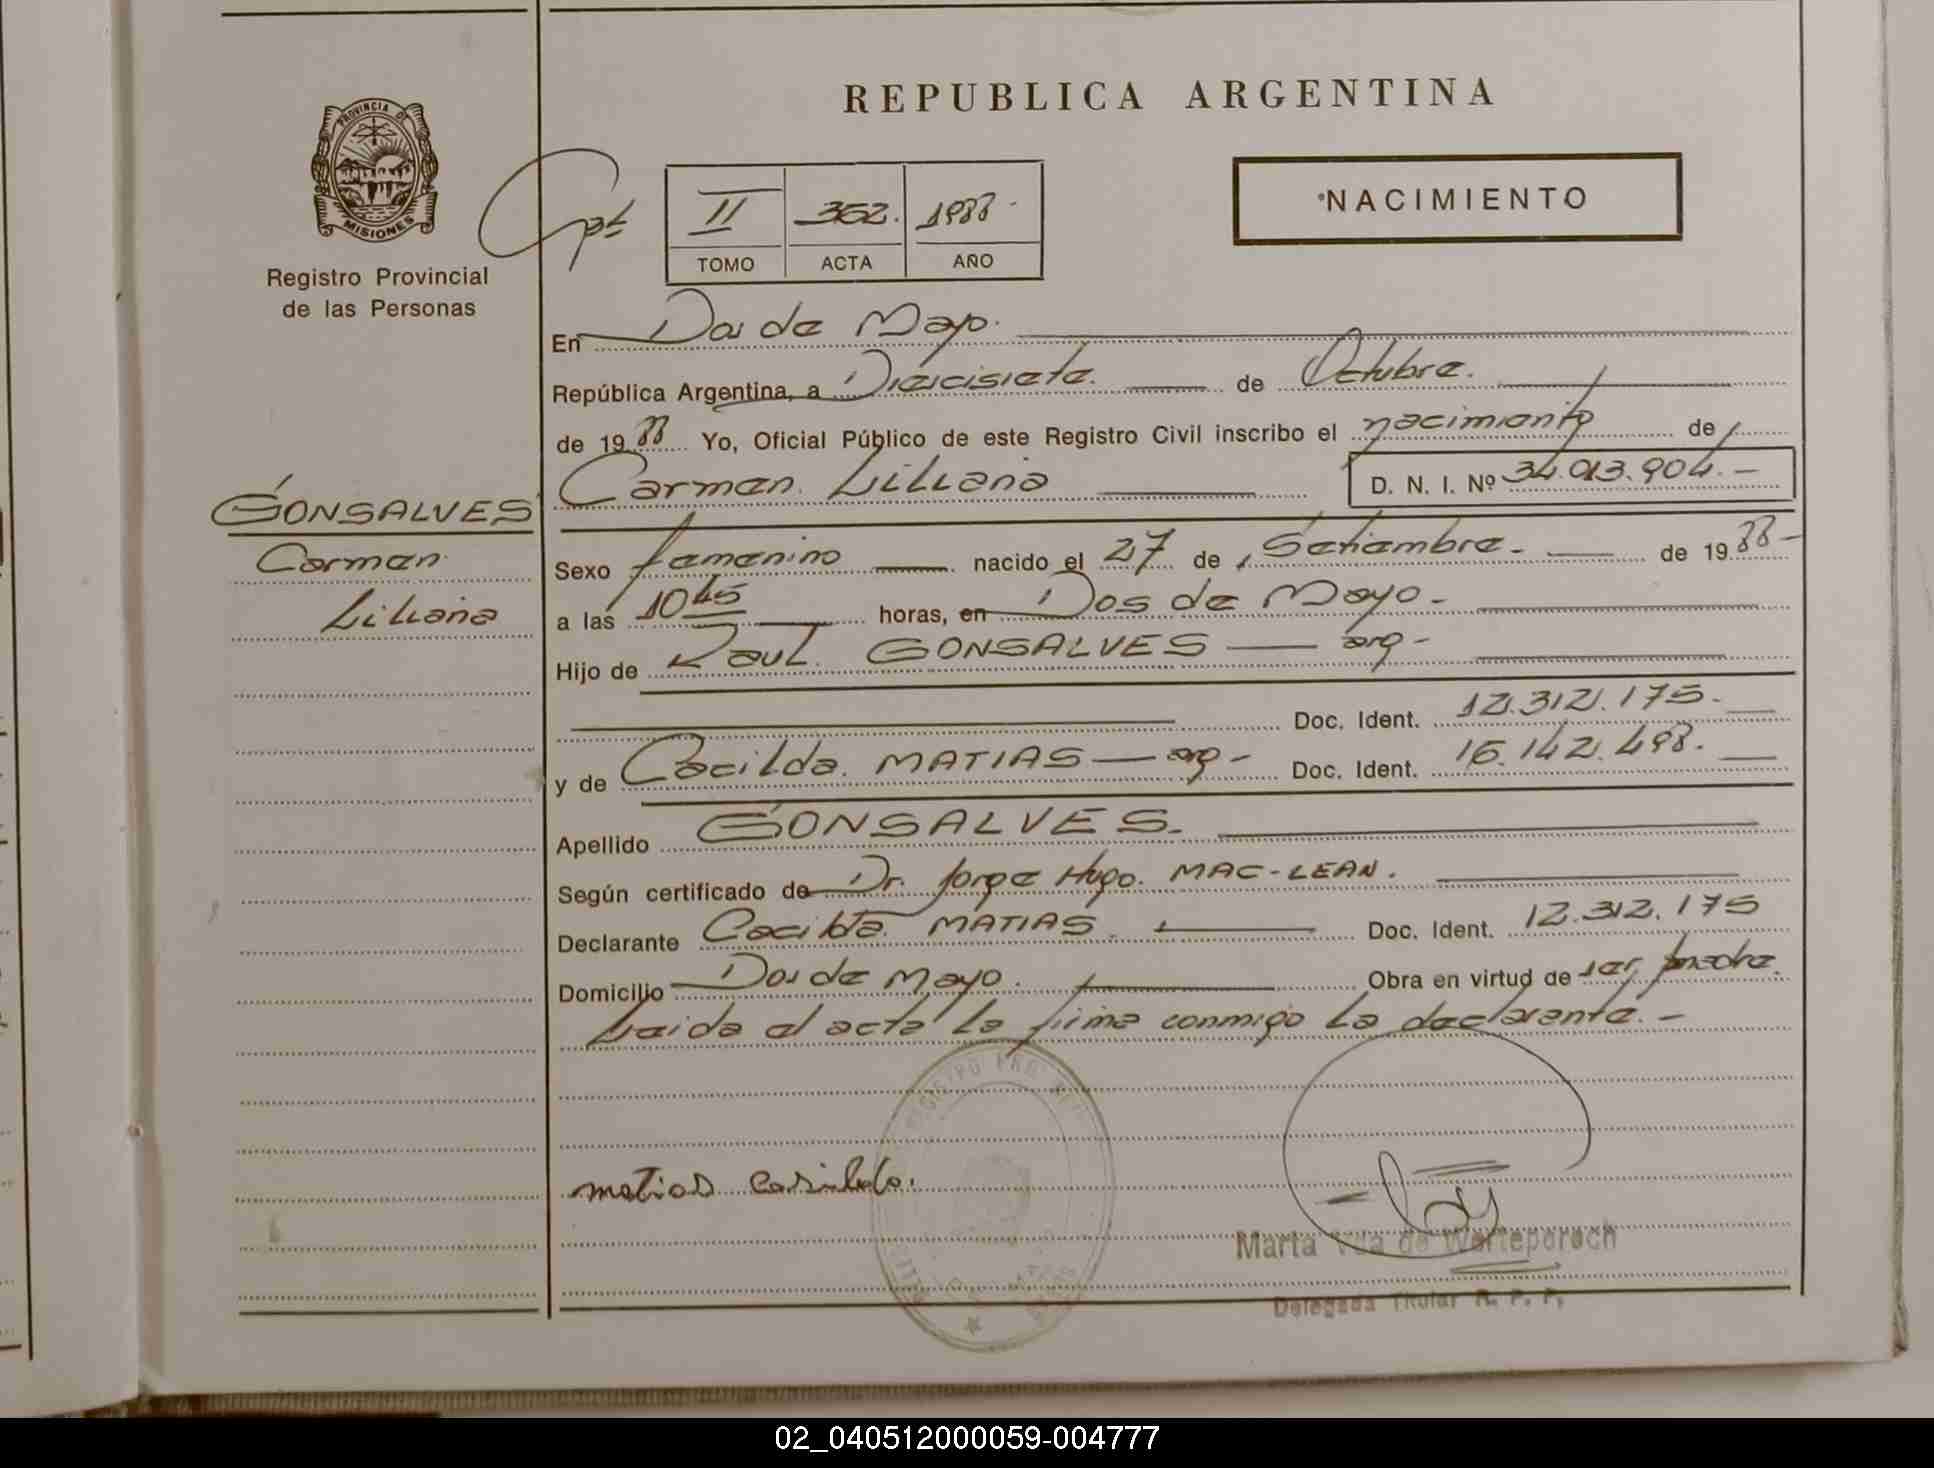 REPUBLICA ARGENTINA
PROVINCIA DE
MISIONES
Registro Provincial
de las Personas
II 362. 1988-
TOMO ACTA AÑO
NACIMIENTO
En Dos de Mayo.
República Argentina, a Diecisiete. de Octubre.
de 1988 Yo, Oficial Público de este Registro Civil inscribo el nacimiento de
Carmen Liliana D. N. I. Nº 34.013.904.-
GONSALVES
Carmen
Liliana
Sexo femenino nacido el 27 de Setiembre- de 1988-
a las 1045 horas, en Dos de Mayo-
Hijo de Raul GONSALVES — arg-
Doc. Ident. 12.312.175.
y de Cecilda MATIAS — arg- Doc. Ident. 16.142.498.
Apellido GONSALVES.
Según certificado de Dr. Jorge Hugo MAC-LEAN.
Declarante Cecilda MATIAS Doc. Ident. 12.312.175
Domicilio Dos de Mayo. Obra en virtud de ser madre.
Leida el acta la firma conmigo la declarante.-
matias casilda.
Marta Vda de
Delegada Titular R. P. P.
02_040512000059-004777